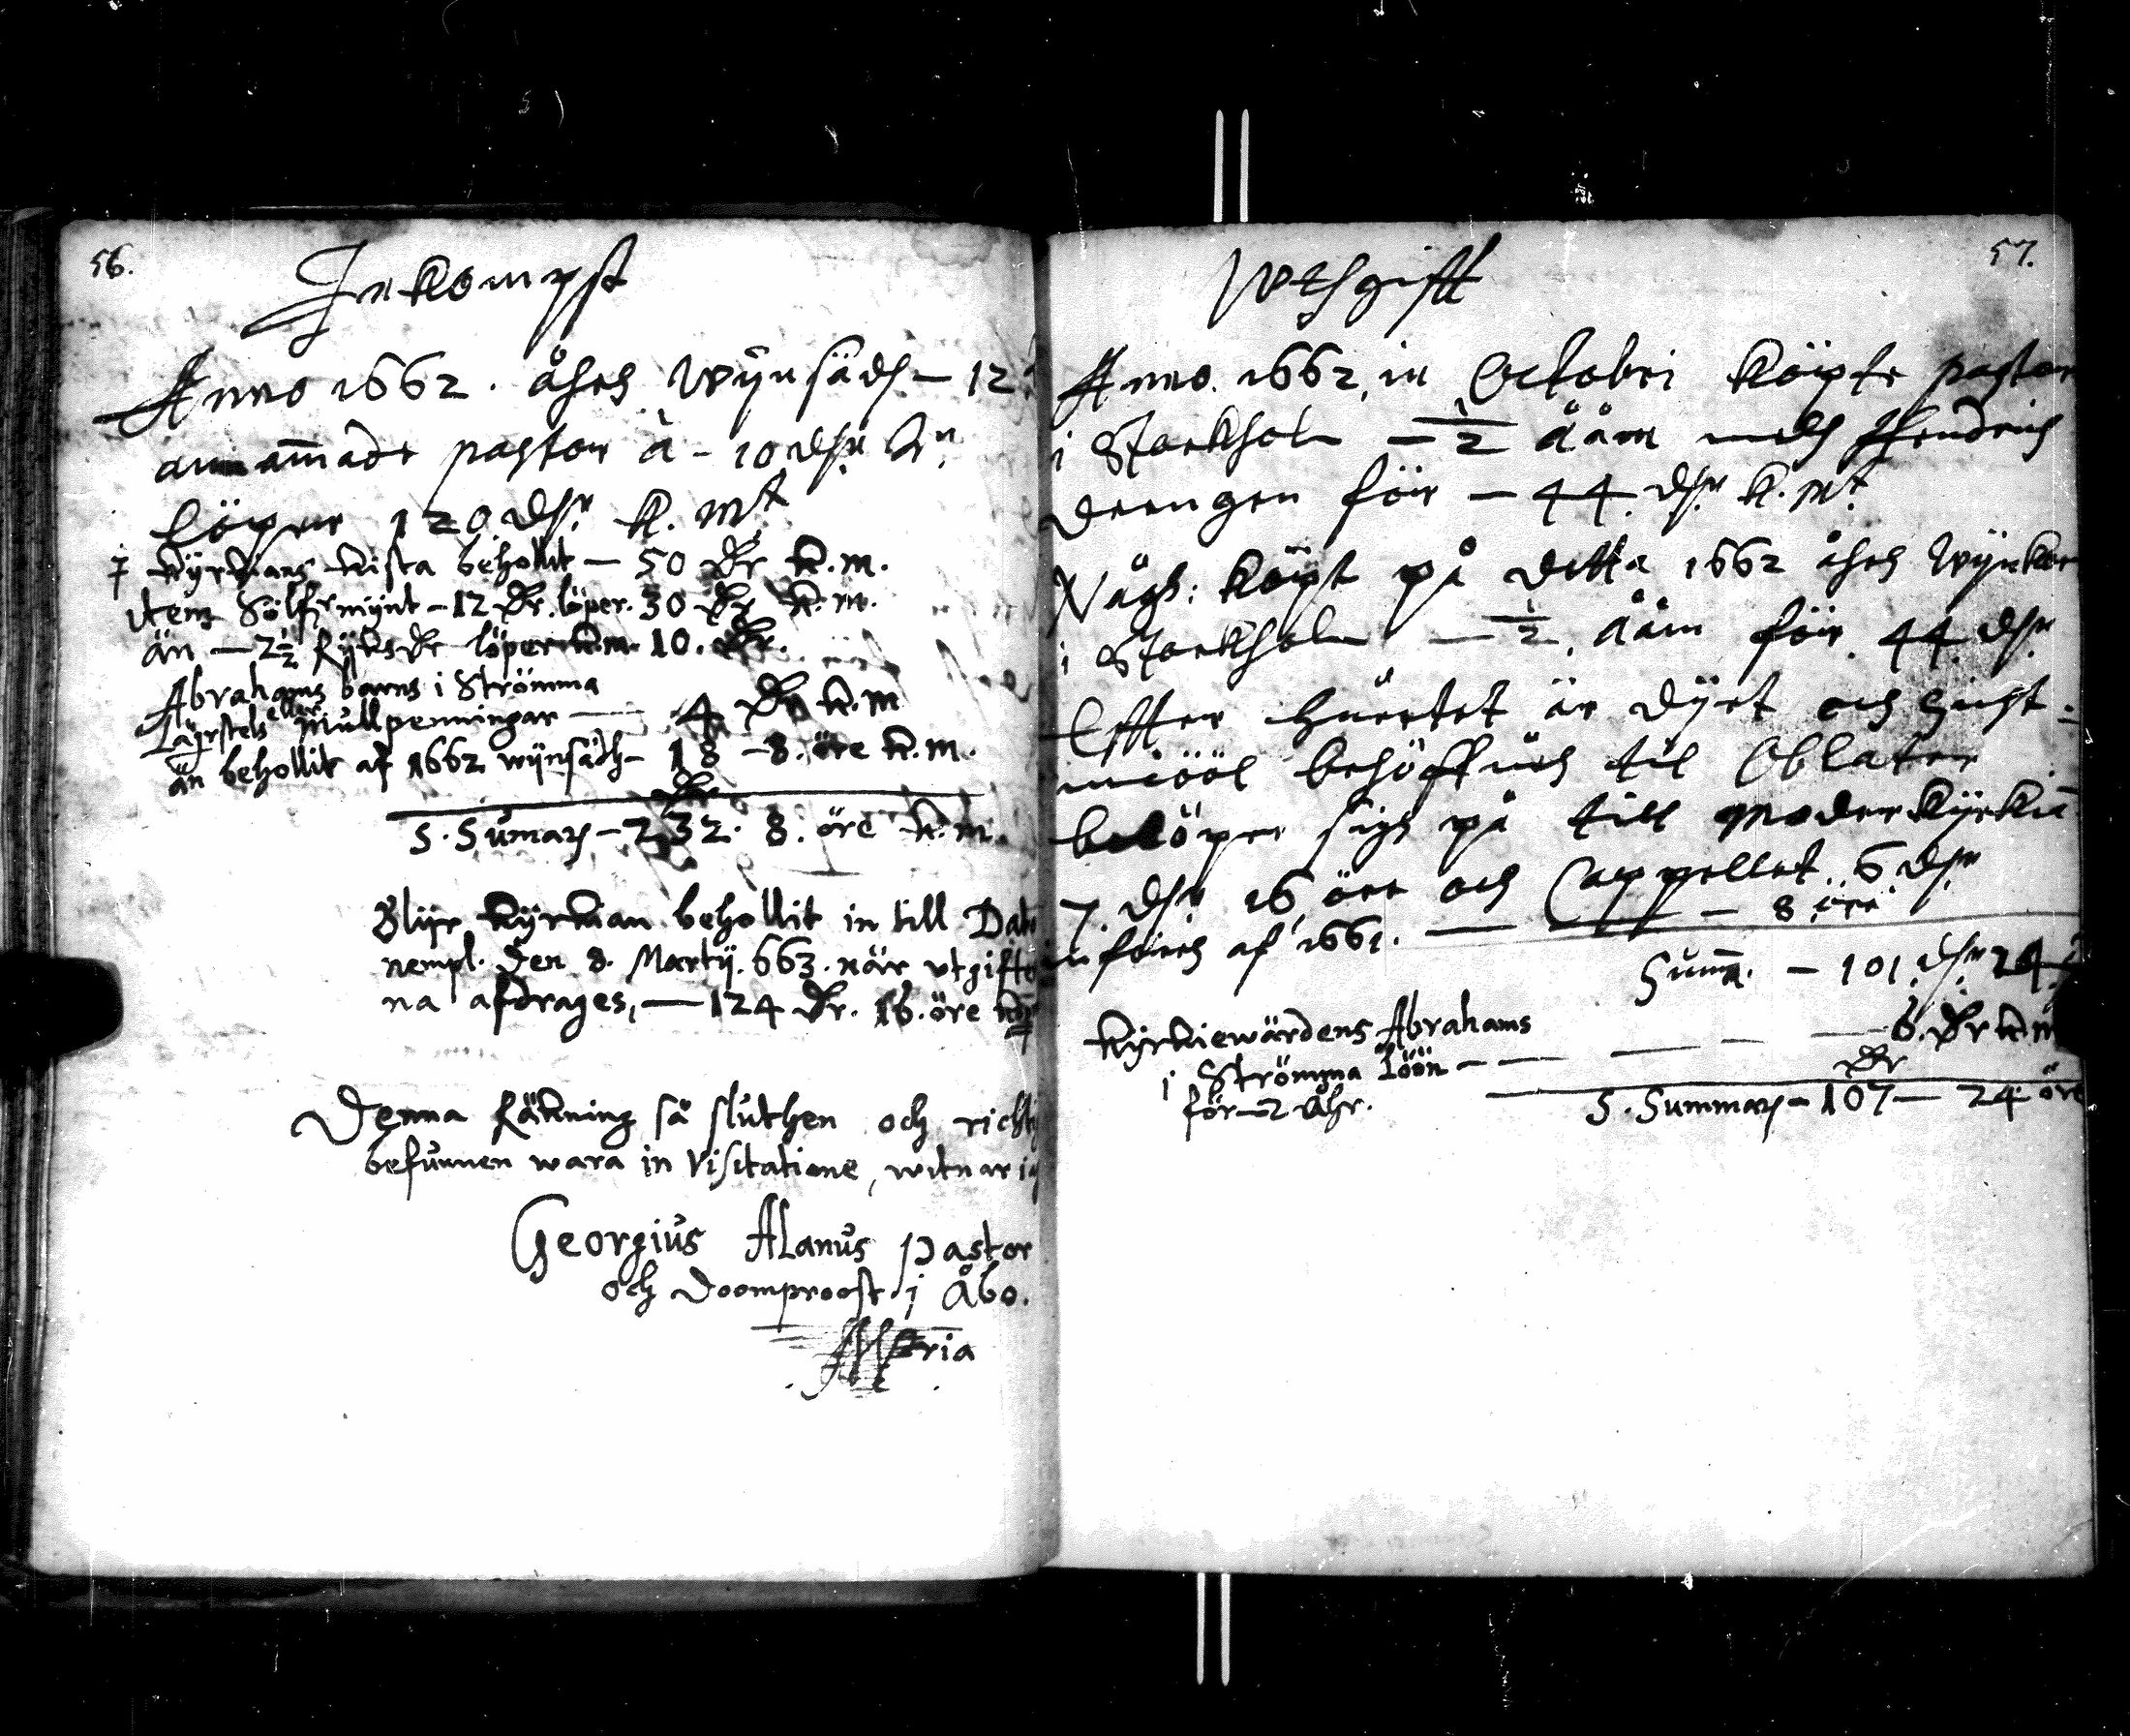 56.
Inkompst
Anno 1662. åhrs Wijnsädh - 12
anammade pastor à - 10 dhr
löper 120 dhr K. mt
i kyrkians kista behollit — 50 Dr k.m.
item Sölfrmijnt - 12 Dr. löper. 30 Dr k.m.
än — 2½ Rijks Dr löper k.m. 10. Dr.
Abrahams barns i Strömma
Läyrstels eller Mullpenningar — 4 Dr k.m
än behollit af 1662 wijnsädh - 18 - 8. öre k.m.
Dr
S. Sumary - 232. 8. öre k.m.
Blijr kyrkian behollit in till Dato
nempl. Den 8. Martij. 663. när utgifter
na afdrages, — 124 Dr. 16. öre
Denna Räkning så sluthen och richtig
befunnen wara in Visitatione, witnar
Georgius Alanus Pastor
och Doomproost i Åbo.
57.
Wthgifft
Anno. 1662, in Octobri köpte pastor
i Stockholm — ½ ååm medh Hendrich
drengen för — 44. dhr K. mt
Någh: köpt på detta 1662 åhrs Wijnkor
i Stockholm — ½. ååm för. 44 dhr
Effter huetet är dyrt och
miööl behöffues til Oblater
belöper sigh på till Moderkyrkian
7. dhr 16 öre och Cappellet 6 dhr
införes af 1661. — — 8 öre
Summa. — 101 dhr 24
Kyrkiewärdens Abrahams — 6. Dr k.m
i Strömma Löön — — — —
för - 2 Åhr.
Dr
S. Summary - 107 — 24 öre